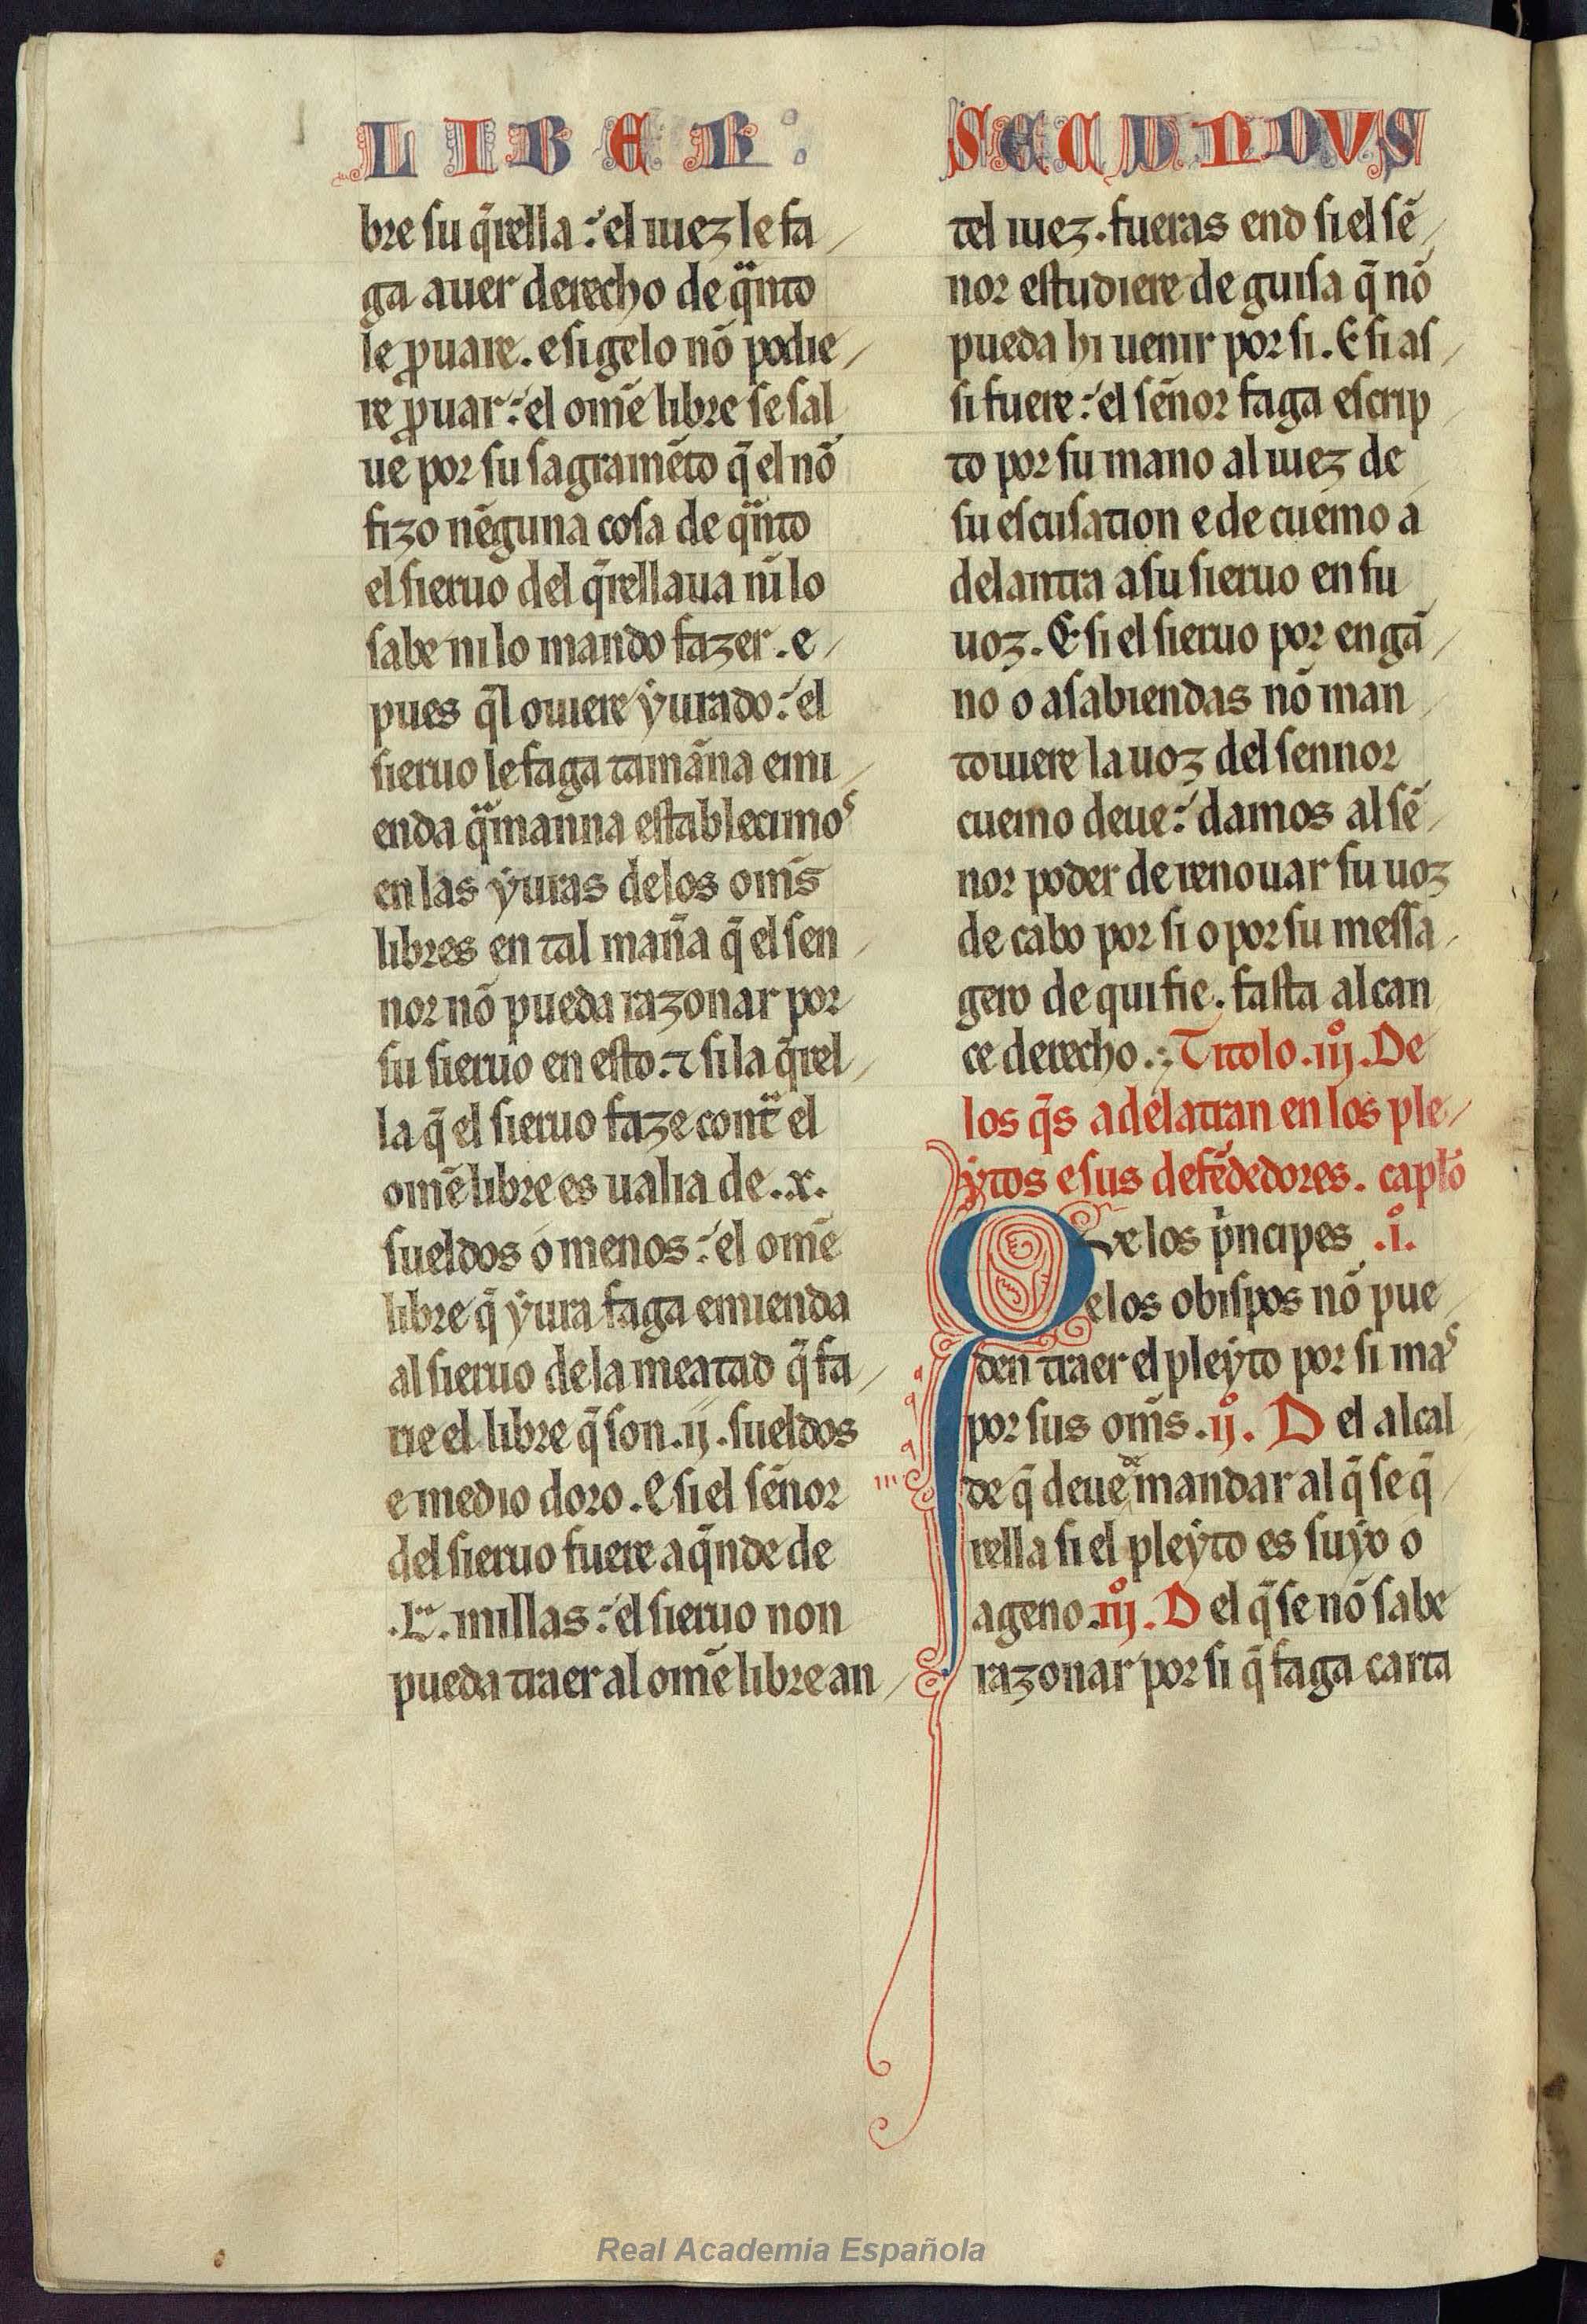 LIBER :
bre su q̃rella : el iuez le fa
ga auer derecho de qᷓnto
le ꝓuare . e si gelo nõ podie
re ꝓuar : el omẽ libre se sal
ue por su sagramẽto q̃ el nõ
fizo nẽguna cosa de qᷓnto
el sieruo del q̃rellaua nĩ lo
sabe ni lo mando fazer . e
pues q̃l ouiere ẏurado : el
sieruo le faga tamãna emi
enda qᷓmanna establecimos
en las ẏuras delos om̃s
libres en tal mañа q̃ el sen
nor nõ pueda razonar por
su sieruo en esto . ⁊ si la q̃rel
la q̃ el sieruo faze contᷓ el
omẽ libre es ualia de .x.
sueldos o menos : el omẽ
libre q̃ ẏura faga emienda
al sieruo de la meatad q̃ fa
rie el libre q̃ son .ij. sueldos
e medio doro . E si el sẽnor
del sieruo fuere aq̃nde de
.L. millas : el sieruo non
pueda traer al omẽ libre an
SECUNDVS
tel iuez . fueras end si el sẽ
nor estudiere de guisa q̃ nõ
pueda hi uenir por si . E si as
si fuere : el sẽnor faga escrip
to por su mano al iuez de
su escusation e de cuemo a
delantra a su sieruo en su
uoz . E si el sieruo por engã
no o asabiendas nõ man
touiere la uoz del sennor
cuemo deue : damos al sẽ
nor poder de renouar su uoz
de cabo por si o por su messa
gero de qui fie . fasta alcan
ce derecho . Titolo .iij. De
los q̃s adelatran en los ple
ẏtos e sus defẽdedores . capłõ
Qve los pͥncipes .i.
e los obispos nõ pue
den traer el pleẏto por si mas
por sus om̃s . ij. D el alcal
de q̃ deue de mandar al q̃ se q̃
rella si el pleẏto es suẏo o
ageno . iij. D el q̃ se nõ sabe
razonar por si q̃ faga carta
Real Academia Española